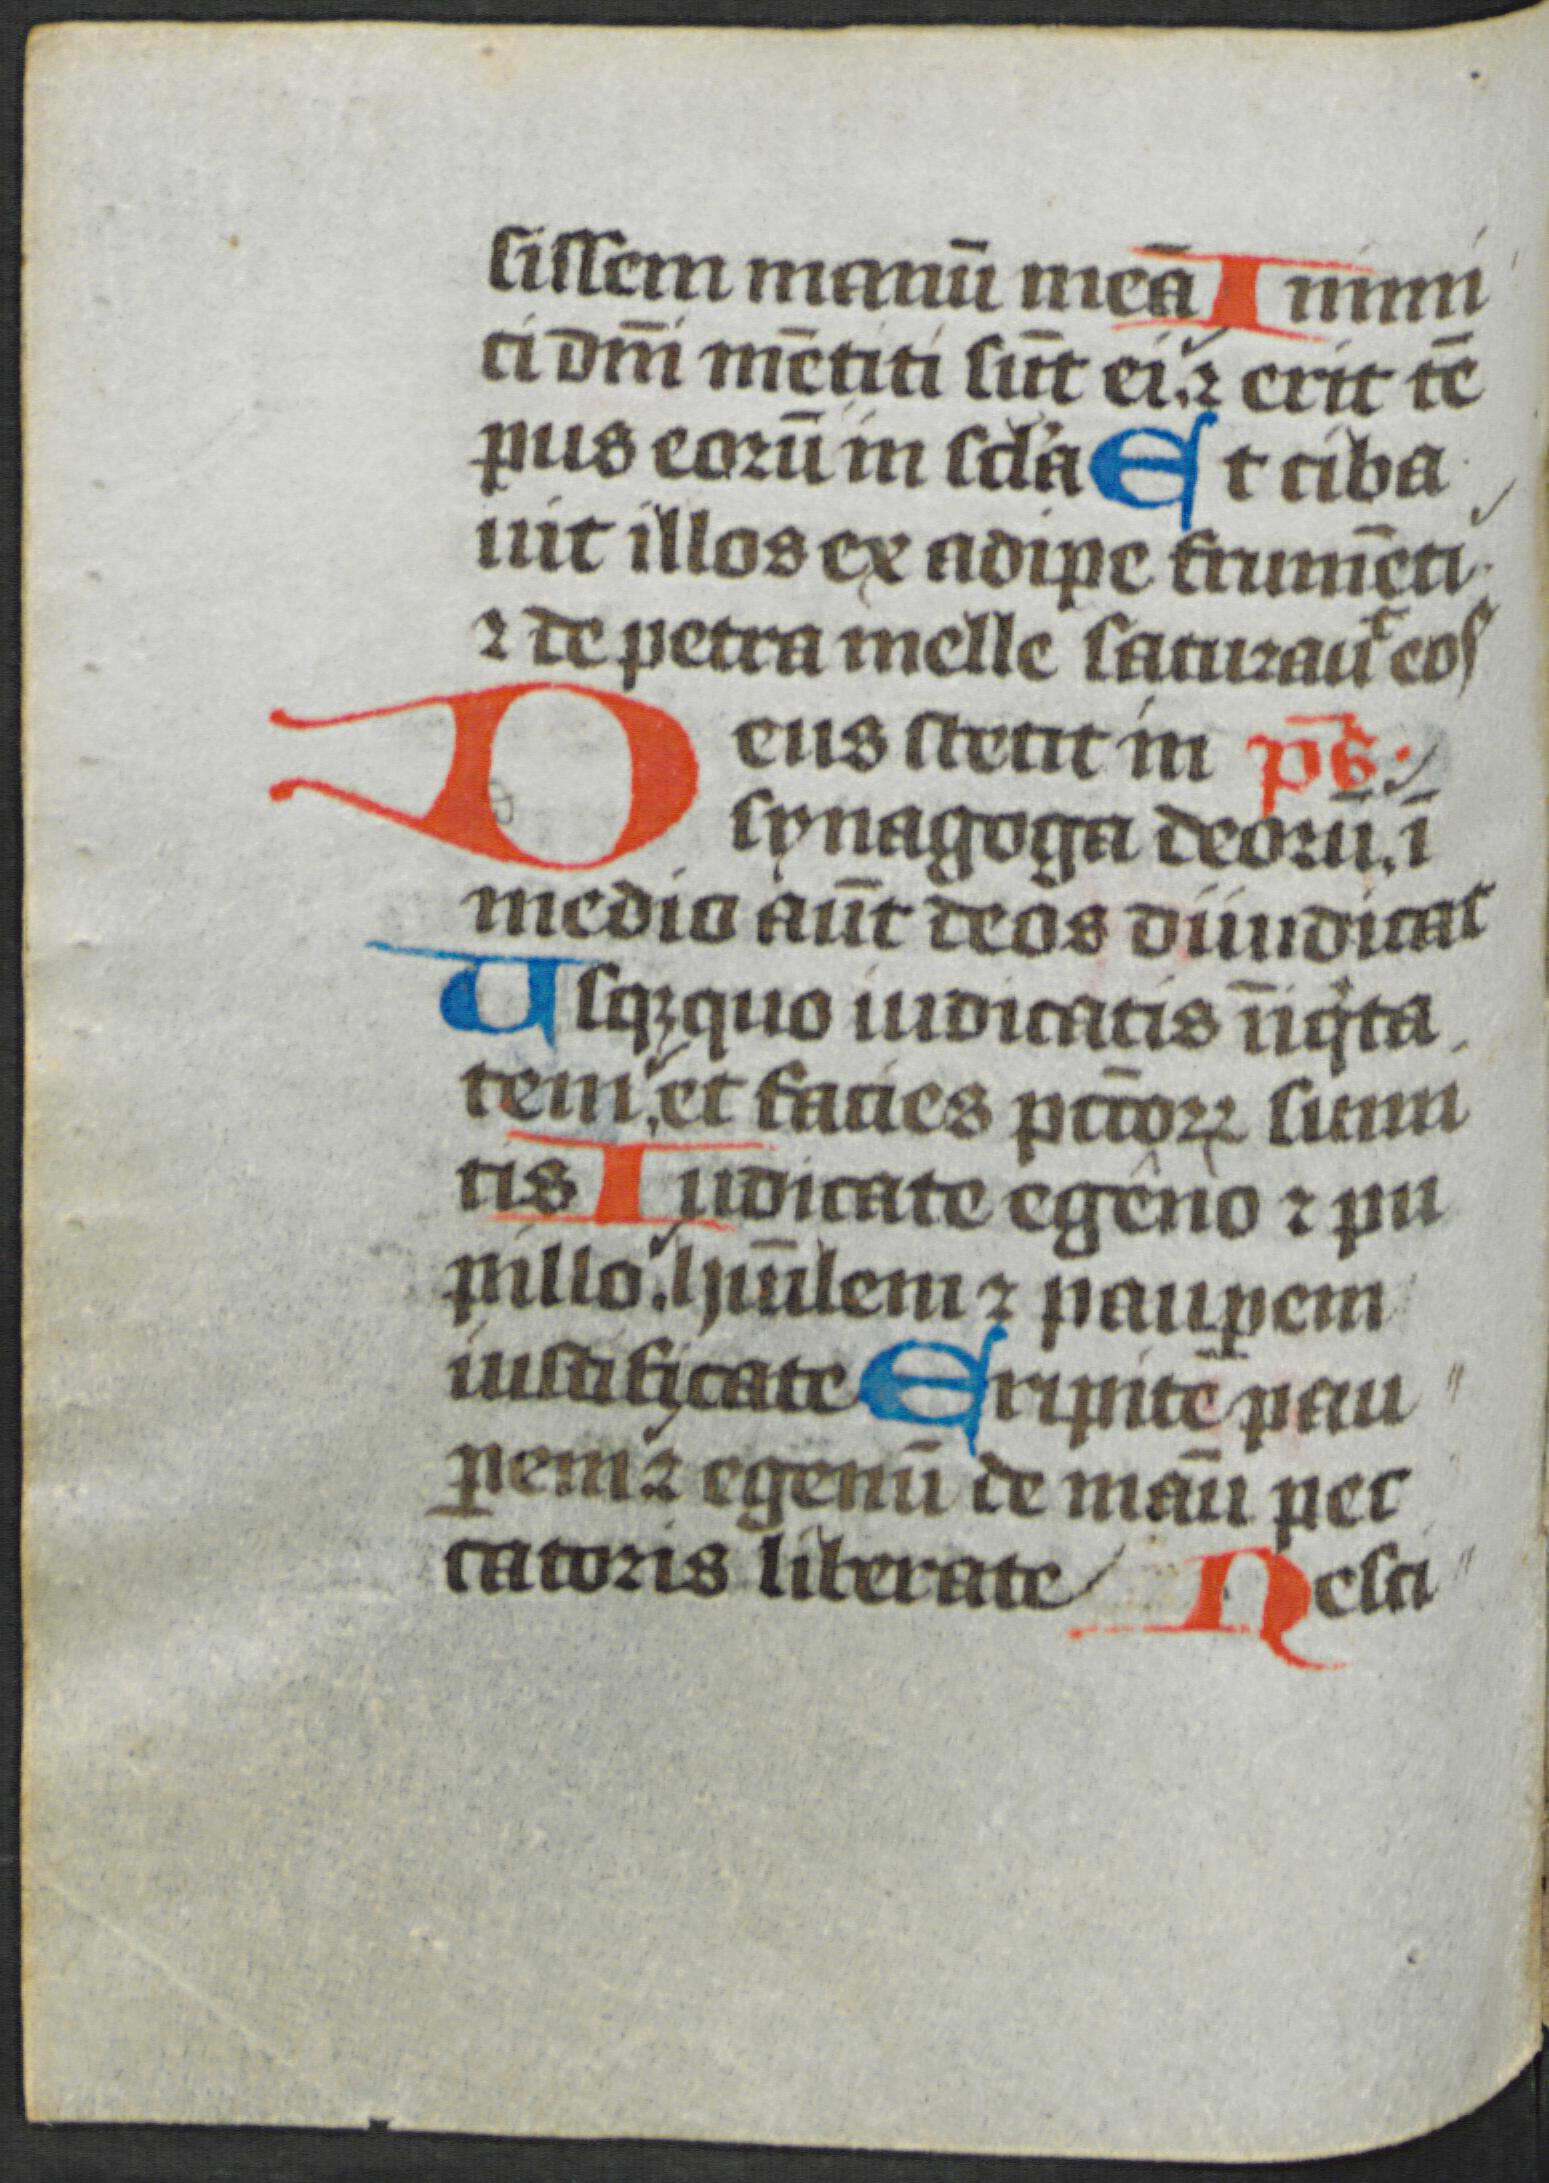 sissem manū meā Inimi
ci dn̄i mētiti sūt ei. ⁊ erit tē
pus eorū in scl'a Et ciba
uit illos ex adipe frumēti.
⁊ de petra melle saturauͭ eos
Deus stetit in p̄s.
synagoga deorū. ī
medio aūt deos diiudicat
Usqꝫquo iudicatis īiqͥta
tem. et facies pc̄torꝝ sumi
tis Iudicate egeno ⁊ pu
pillo. hūilem ⁊ pauꝑem
iustificate Eripite pau
ꝑem ⁊ egenū de manū pec
catoris liberate Nesci